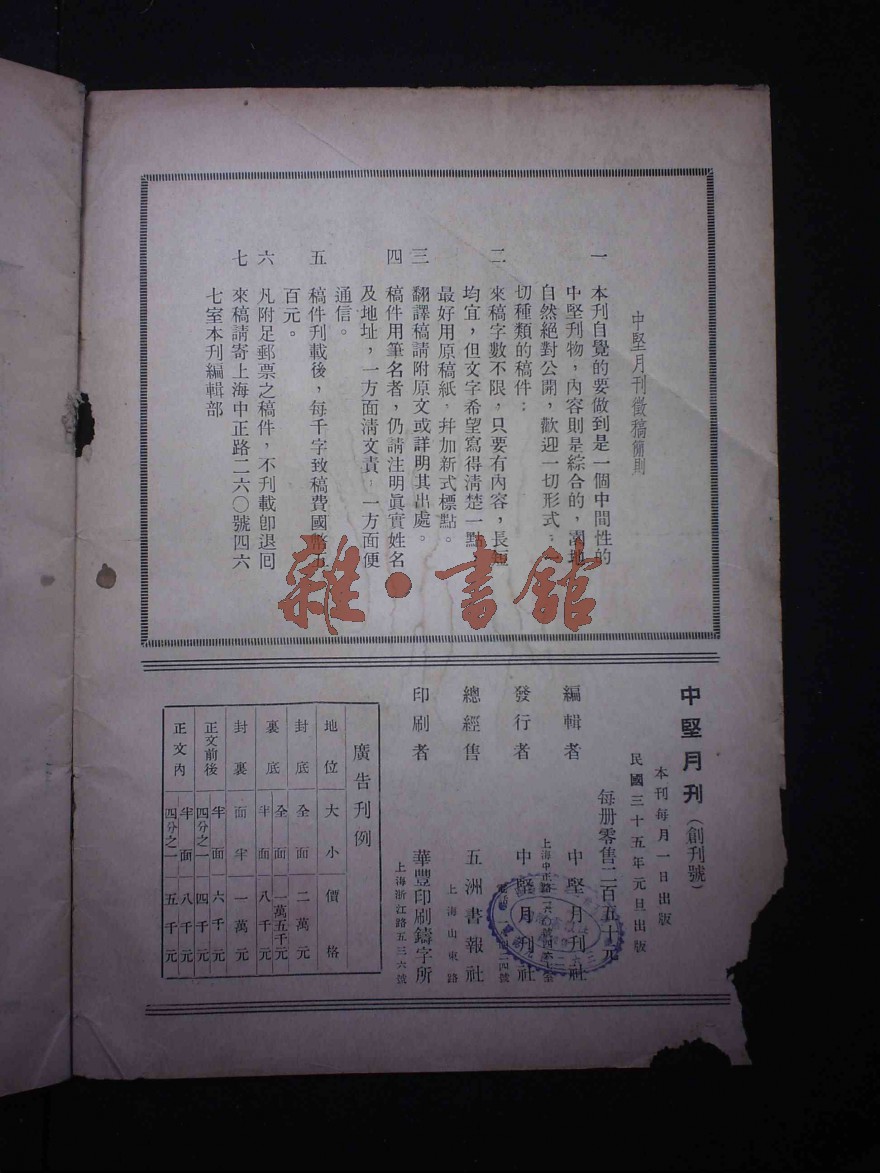 中堅月刊徵稿簡則
一 本刊自覺的要做到是一個中間性的
中堅刊物，內容則是綜合的，園地
自然絕對公開，歡迎一切形式，一
切種類的稿件；
二 來稿字數不限，只要有內容，長短
均宜，但文字希望寫得清楚一點，
最好用原稿紙，幷加新式標點。
三 翻譯稿請附原文或詳明其出處。
四 稿件用筆名者，仍請注明眞實姓名
及地址，一方面清文責，一方面便
通信。
五 稿件刊載後，每千字致稿費國幣五
百元。
六 凡附足郵票之稿件，不刊載卽退回
七 來稿請寄上海中正路二六〇號四六
七室本刊編輯部
雜·書館
中堅月刊（創刊號）
本刊每月一日出版
民國三十五年元旦出版
每册零售二百五十元
編輯者 中堅月刊社
上海中正路二六〇號四六七室
發行者 中堅月刊社
總經售 五洲書報社
上海山東路
印刷者 華豐印刷鑄字所
上海浙江路五三六號
廣告刊例
地位 大小 價格
封底 全面 二萬元
裏底 全面 一萬五千元
半面 八千元
封裏 面半 一萬元
正文前後 半面 六千元
四分之一 四千元
正文內 半面 八千元
四分之一 五千元